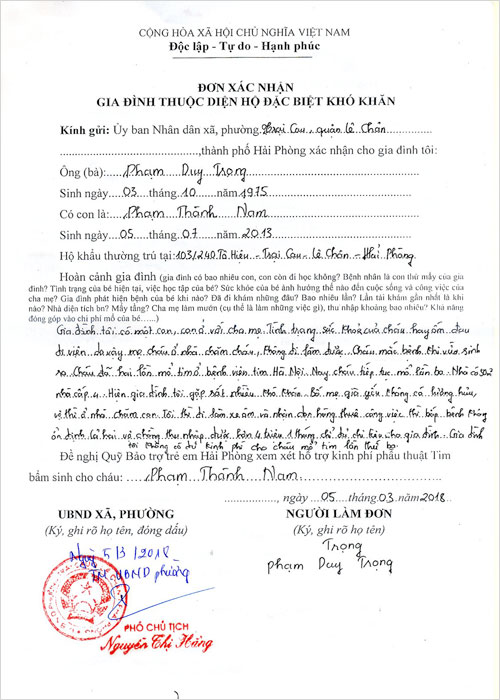 CỘNG HÒA XÃ HỘI CHỦ NGHĨA VIỆT NAM
Độc lập - Tự do - Hạnh phúc
ĐƠN XÁC NHẬN
GIA ĐÌNH THUỘC DIỆN HỘ ĐẶC BIỆT KHÓ KHĂN
Kính gửi: Ủy ban Nhân dân xã, phường Trại Cau, quận Lê Chân
thành phố Hải Phòng xác nhận cho gia đình tôi:
Ông (bà): Phạm Duy Trọng
Sinh ngày 03 tháng 10 năm 1975
Có con là: Phạm Thành Nam
Sinh ngày 05 tháng 07 năm 2013
Hộ khẩu thường trú tại: 103/240 Tô Hiệu - Trại Cau - Lê Chân - Hải Phòng
Hoàn cảnh gia đình (gia đình có bao nhiêu con, con còn đi học không? Bệnh nhân là con thứ mấy của gia
đình? Tình trạng của bé hiện tại, việc học tập của bé? Sức khỏe của bé ảnh hưởng thế nào đến cuộc sống và công việc của
cha mẹ? Gia đình phát hiện bệnh của bé khi nào? Đã đi khám những đâu? Bao nhiêu lần? Lần tái khám gần nhất là khi
nào? Nhà diện tích bn? Mấy tầng? Cha mẹ làm mướn (cụ thể là làm những việc gì), thu nhập khoảng bao nhiêu? Khả năng
đóng góp vào chi phí mổ của bé......)
Gia đình tôi có một con, con ở với cha mẹ. Tình trạng sức khoẻ của cháu hay ốm đau
đi viện do vậy mẹ cháu ở nhà chăm cháu, không đi làm được. Cháu mắc bệnh khi vừa sinh
ra. Cháu đã hai lần mổ tim ở bệnh viện tim Hà Nội. Nay cháu tiếp tục mổ lần ba. Nhà có
nhà cấp 4. Hiện gia đình tôi gặp rất nhiều khó khăn. Bố mẹ già yếu không có lương hưu,
vợ thì ở nhà chăm con. Tôi thì đi làm xe ôm và nhận dọn hàng thuê công việc thì bấp bênh không
ổn định cả hai vợ chồng thu nhập được hơn 4 triệu 1 tháng chỉ đủ chi tiêu cho gia đình. Gia đình
tôi không có đủ kinh phí cho cháu mổ tim lần thứ ba.
Đề nghị Quỹ Bảo trợ trẻ em Hải Phòng xem xét hỗ trợ kinh phí phẫu thuật Tim
bẩm sinh cho cháu: Phạm Thành Nam
, ngày 05 tháng 03 năm 2018
UBND XÃ, PHƯỜNG
(Ký, ghi rõ họ tên, đóng dấu)
NGƯỜI LÀM ĐƠN
(Ký, ghi rõ họ tên)
Trọng
Phạm Duy Trọng
Ngày 5/3/2018
TM UBND phường
PHÓ CHỦ TỊCH
Nguyễn Thị Hằng